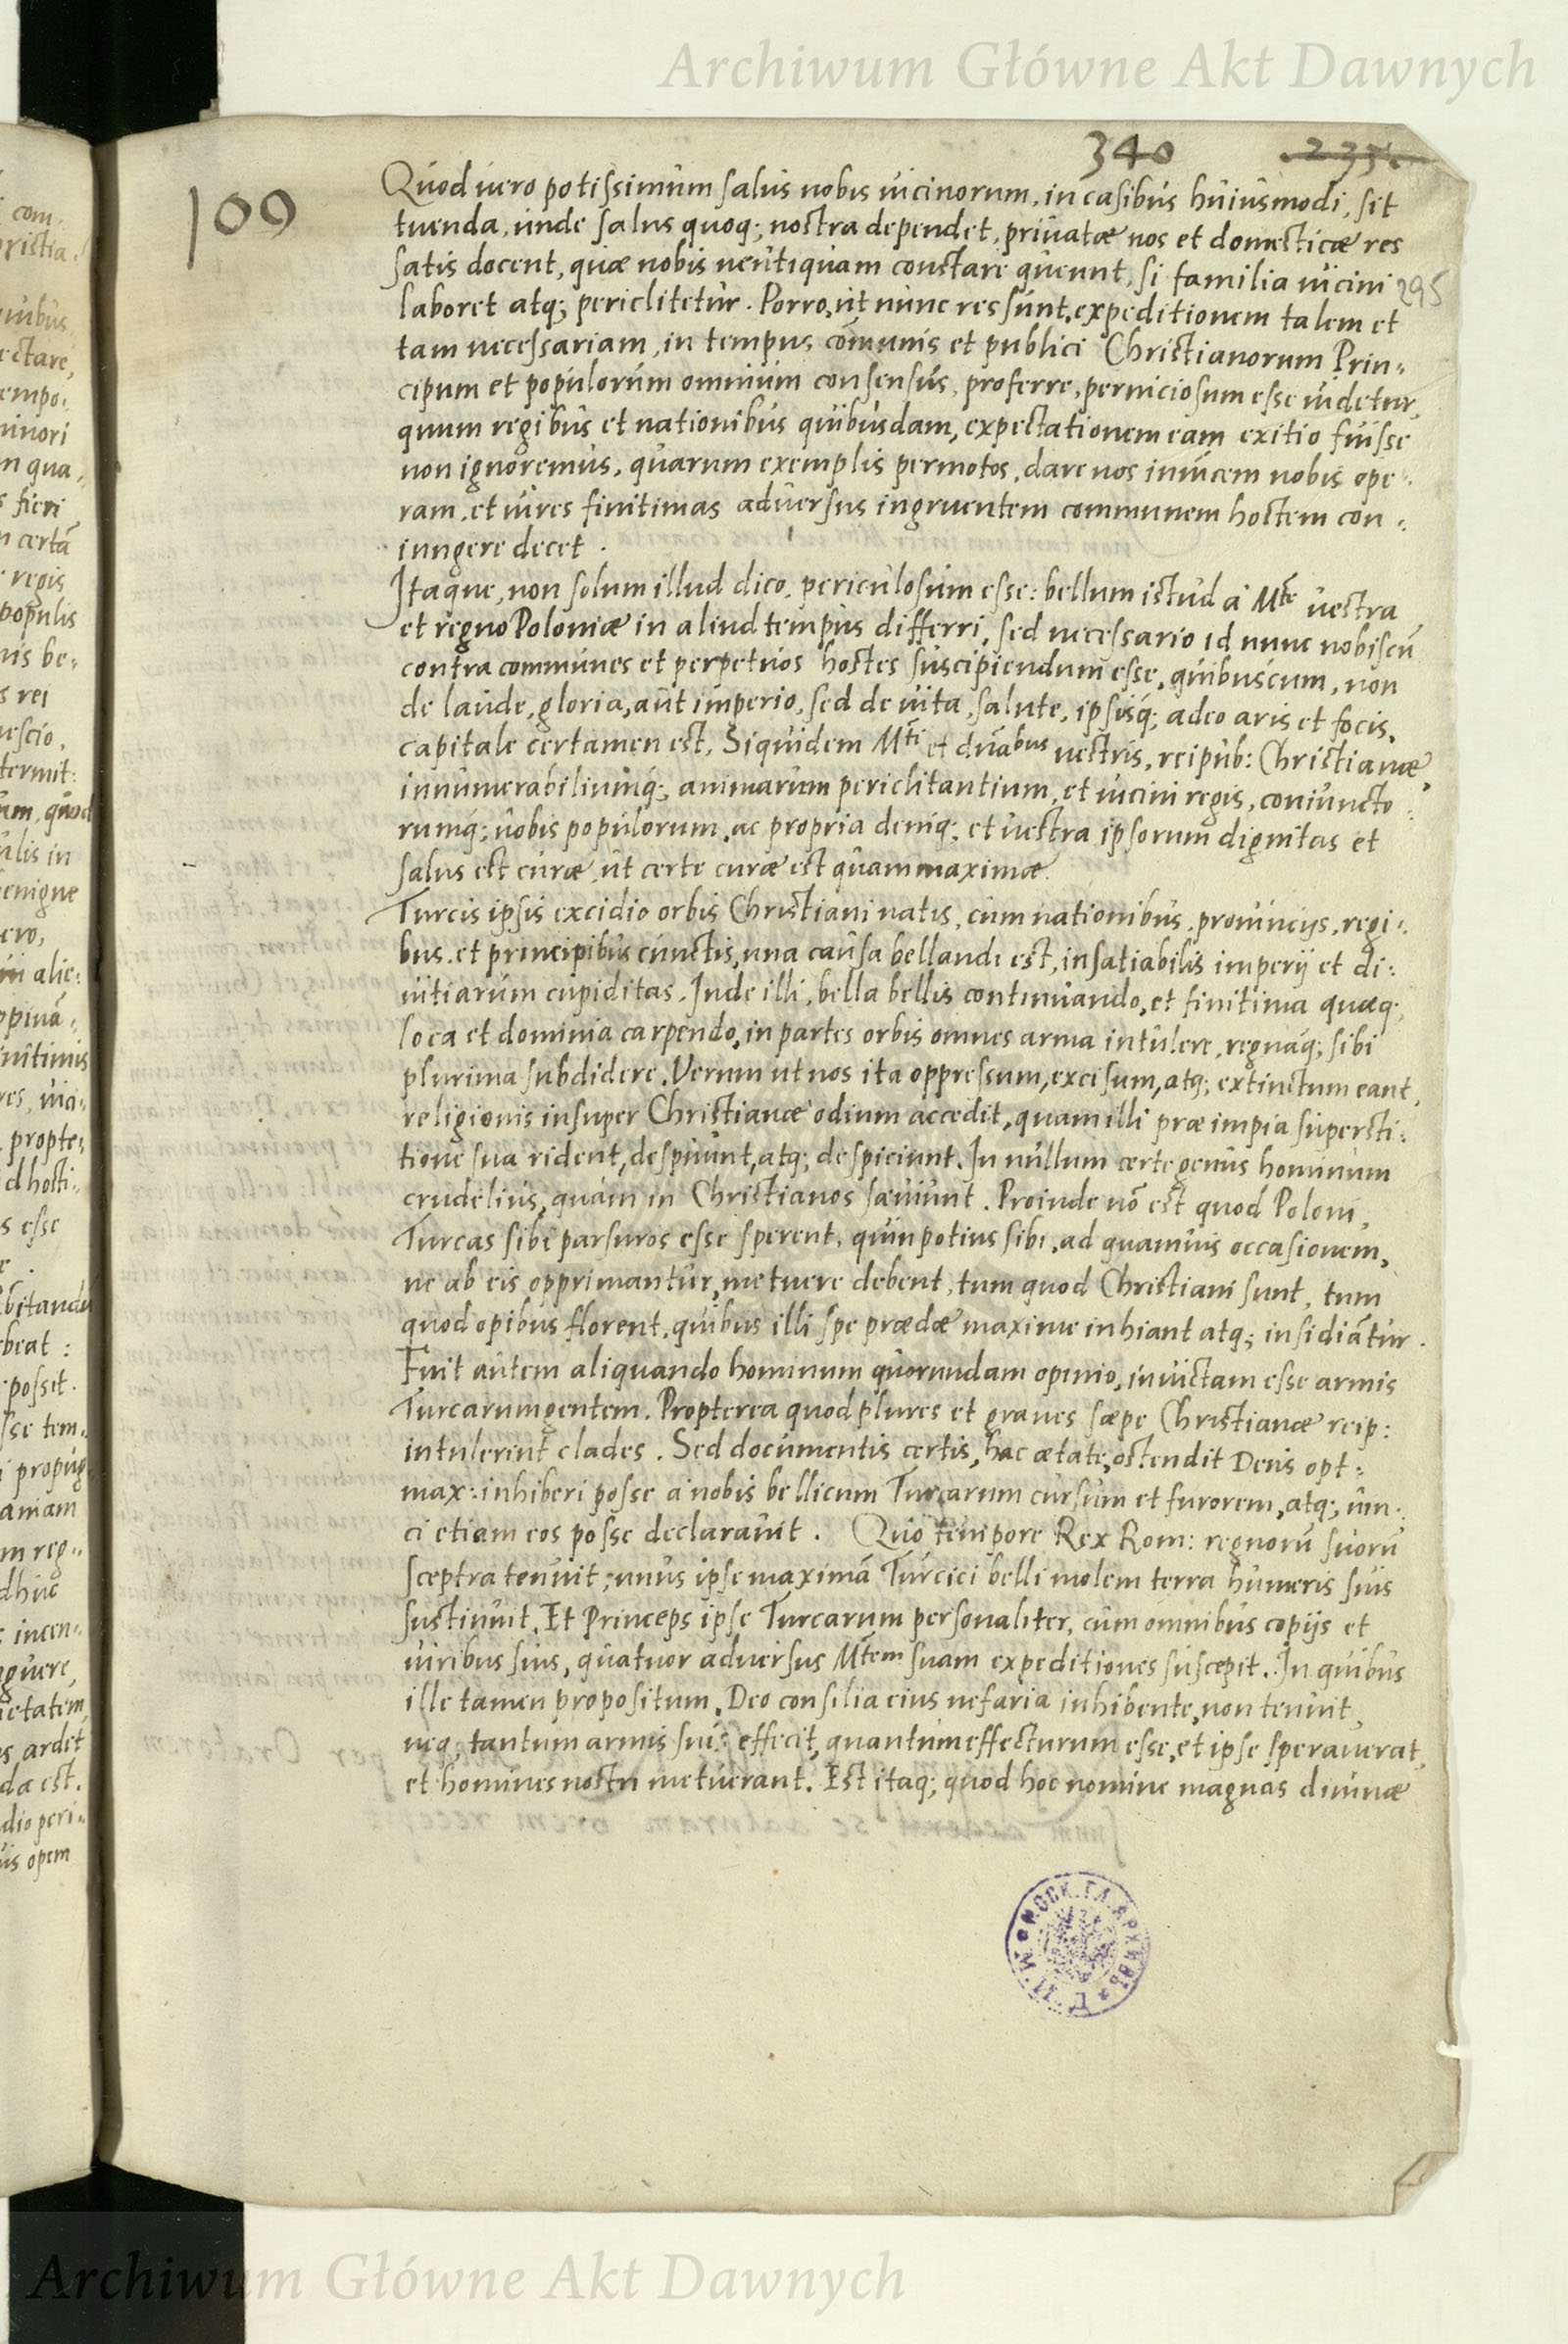 Archiwum Główne Akt Dawnych
340
109
Quod uero potissimum salus nobis uicinorum, in casibus huiusmodi, sit
tuenda, unde salus quoq; nostra dependet, priuatæ nos et domesticæ res
satis docent, quæ nobis neutiquam constare queunt, si familia uicini
295
laboret atq; periclitetur. Porro, ut nunc res sunt, expeditionem talem et
tam necessariam, in tempus com̄unis et publici Christianorum Prin⸗
cipum et populorum omnium consensus, proferre, perniciosum esse uidetur,
quum regibus et nationibus quibusdam, expectationem eam exitio fuisse
non ignoremus, quarum exemplis permotos, dare nos inuicem nobis ope⸗
ram, et uires finitimas aduersus ingruentem communem hostem con⸗
iungere decet.
Itaque, non solum illud dico, periculosum esse: bellum istud à Mte uestra
et regno Poloniæ in aliud tempus differri, sed necessario id nunc nobiscū
contra communes et perpetuos hostes suscipiendum esse, quibuscum, non
de laude, gloria, aut imperio, sed de uita, salute, ipsisq; adeo aris et focis,
capitale certamen est, Siquidem Mti et dn̄abus uestris, reipub: Christianæ,
innumerabiliumq; animarum periclitantium, et uicini regis, coniuncto⸗
rumq; uobis populorum, ac propria deniq; et uestra ipsorum dignitas et
salus est curæ, ut certe curæ est quam maximæ.
Turcis ipsis excidio orbis Christiani natis, cum nationibus, prouincijs, regi⸗
bus, et principibus cunctis, una causa bellandi est, insatiabilis imperij et di⸗
uitiarum cupiditas. Inde illi, bella bellis continuando, et finitima quæq;
loca et dominia carpendo, in partes orbis omnes arma intulere, regnaq; sibi
plurima subdidere. Verum ut nos ita oppressum, excisum, atq; extinctum eant,
religionis insuper Christianæ odium accedit, quam illi præ impia supersti⸗
tione sua rident, despuunt, atq; despiciunt. In nullum certe genus hominum
crudelius, quam in Christianos sæuiunt. Proinde nō est quod Poloni,
Turcas sibi parsuros esse sperent, quin potius sibi, ad quamuis occasionem,
ne ab eis opprimantur, metuere debent, tum quod Christiani sunt, tum
quod opibus florent, quibus illi spe prædæ maxime inhiant atq; insidiātur.
Fuit autem aliquando hominum quorundam opinio, inuictam esse armis
Turcarum gentem. Propterea quod plures et graues sæpe Christianæ reip:
intulerint clades. Sed documentis certis, hac ætate, ostendit Deus opt:
max: inhiberi posse à nobis bellicum Turcarum cursum et furorem, atq; uin⸗
ci etiam eos posse declarauit. Quo tempore Rex Rom: regnorū suorū
sceptra tenuit, unus ipse maximā Turcici belli molem terra humeris suis
sustinuit. Et Princeps ipse Turcarum personaliter, cum omnibus copijs et
uiribus suis, quatuor aduersus Mtem suam expeditiones suscepit. In quibus
ille tamen propositum, Deo consilia eius nefaria inhibente, non tenuit,
neq; tantum armis suis effecit, quantum effecturum esse, et ipse sperauerat,
et homines nostri metuerant. Est itaq; quod hoc nomine magnas diuinæ
Archiwum Główne Akt Dawnych